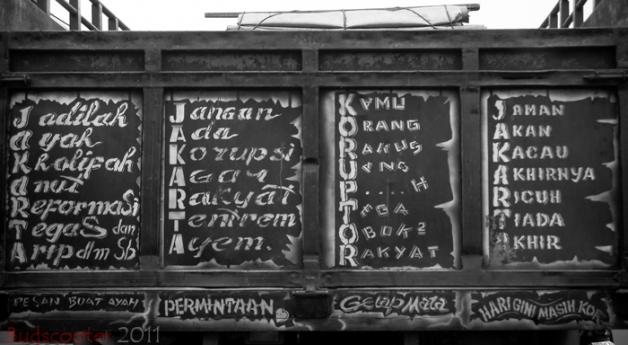 Jadilah
ayah
Kholifah
anut
Reformasi
Tegas dan
Arip dlm Sb
Jangan
Ada
Korupsi
Agar
Rakyat
Tentrem
Ayem.
KAMU
ORANG
RAKUS
UANG
P....H
TEGA
OBOK2
RAKYAT
JAMAN
AKAN
KACAU
AKHIRNYA
RICUH
TIADA
AKHIR
PESAN BUAT AYAH
PERMINTAAN.
Gelap Mata
HARI GINI MASIH KOR
Budscooter 2011